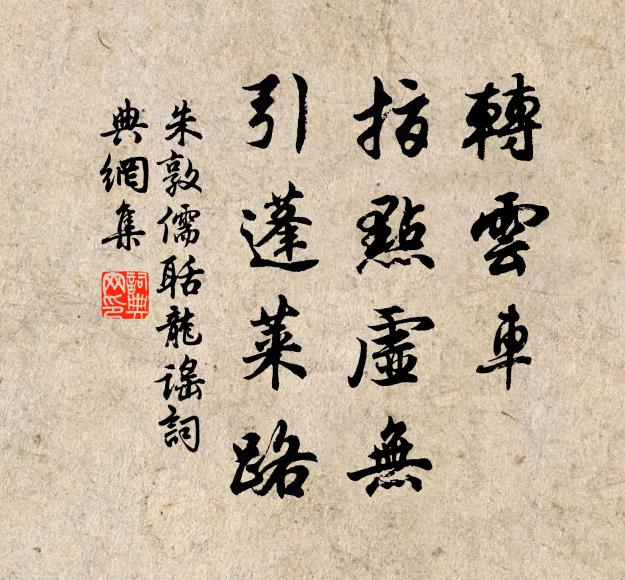 轉雲車
指點虛無
引蓬萊路
朱敦儒聒龍謠詞
典網集
詞典網印